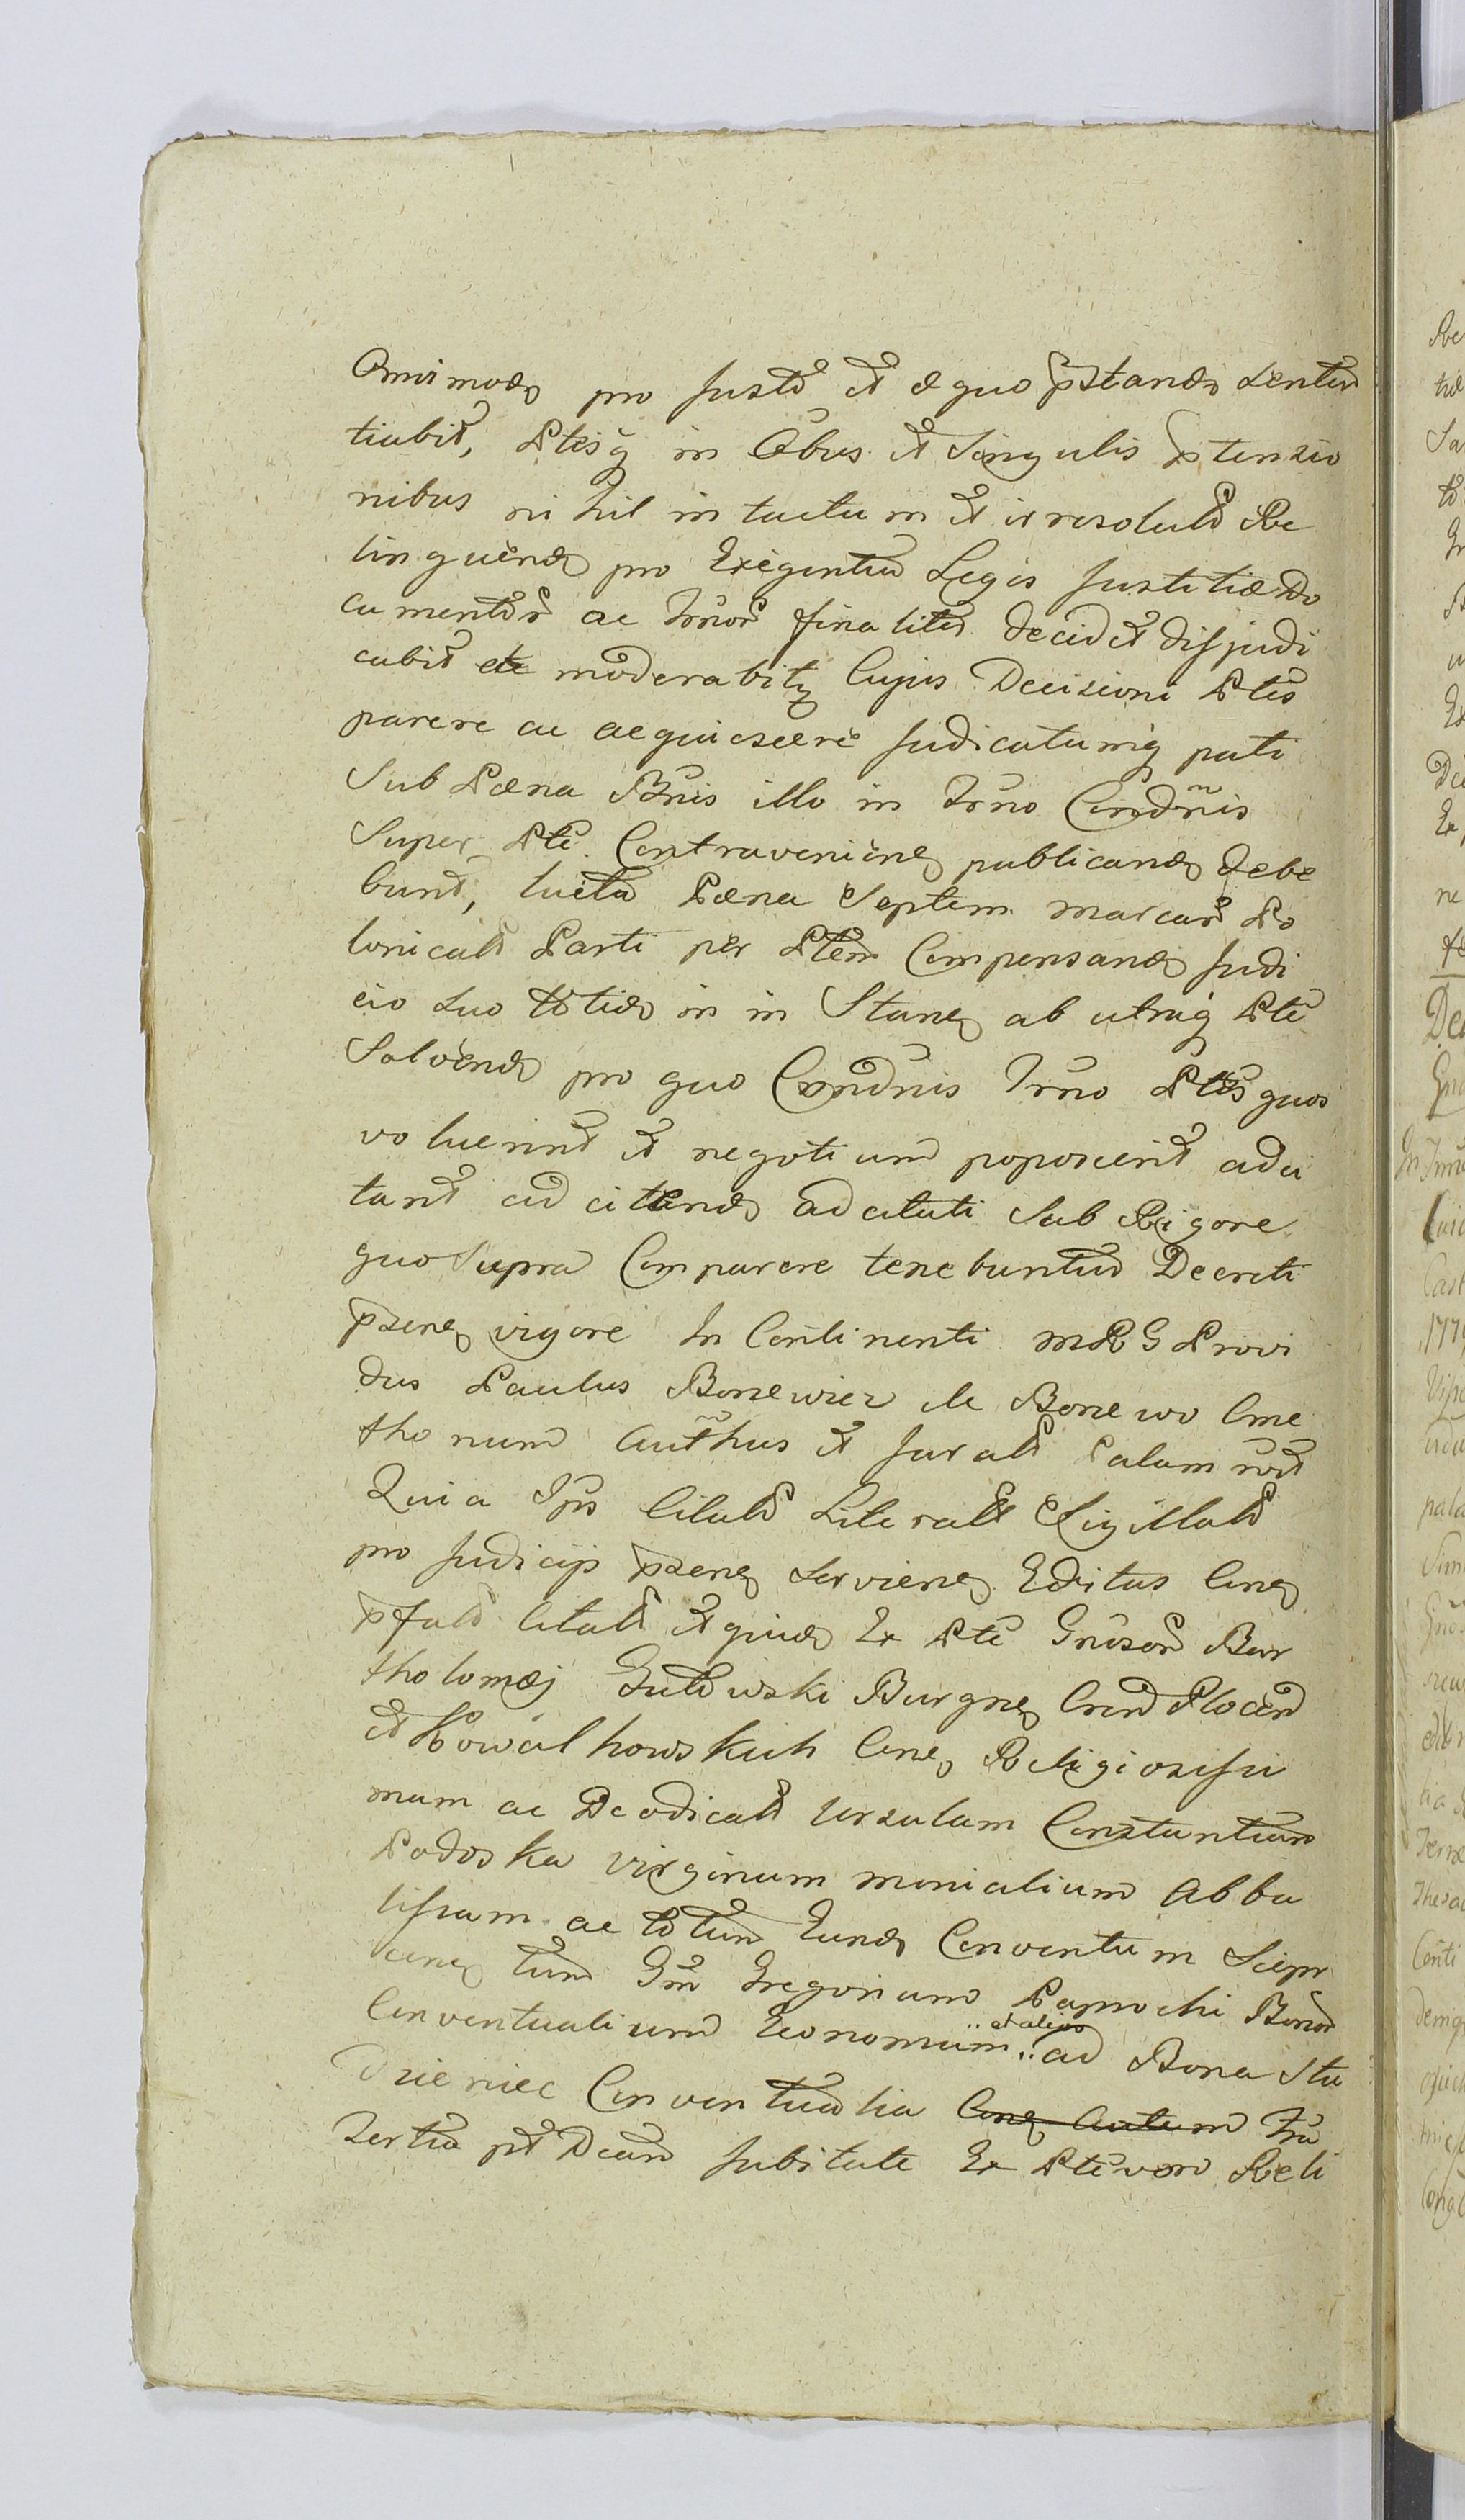 Omnimode pro Justo et æquo pstande senten
tiabit, Ptesq in Obus et Singulis ptensio
nibus nihil intactum et irresolutu Re
linquende pro Exigentia Legis Justitiæ Do
cumentor ac Jrnor finaliter decidet disjudi
cabit et moderabitq Cujus Decisioni Ptes
parere ac acquiescere Judicatumq pati
Sub Pæna Bnis illo in Trno Condnis
Super Pte Contravenien publicande debe
bunt, luita Pæna Septem marcar Po
lonicali Parti per Ptem Compensande Judi
cio suo totide in in Stane ab utraq Pte
Solvende pro quo Condnis Trno Ptes quos
voluerint et negotium poposcerit adci
tant ad citande adcitati Sub Rigore
quo Supra Comparere tenebuntur Decreti
pzene vigore In Continenti MRG Provi
dus Paulus Boniewicz de Boniewo Cme
thonum Authus et Jurati Palam rect
Quia Ips Citati Literali Sigillati
pro Judicijs pzene serviene Editus Cone
pfati Citati et quide Ex Pte Gnosor Bar
tholomæj Gutowski Burgne Crend Plocen
et Kowalkowskich Cone Religiosissi
mam ac Deodicati Ursulam Constantiam
Podoska virginum monialium Abba
tissam ac totum Eunde Conventum Sierpr
cene tum Gm Gregorium Paprocki Bonor
Conventualium Economum .. et alios .. ad Bona Stu
Dzieniec Conventualia Cone Autem Fra
Tertia pt Dcam Jubilate Ex Pte vero Reli